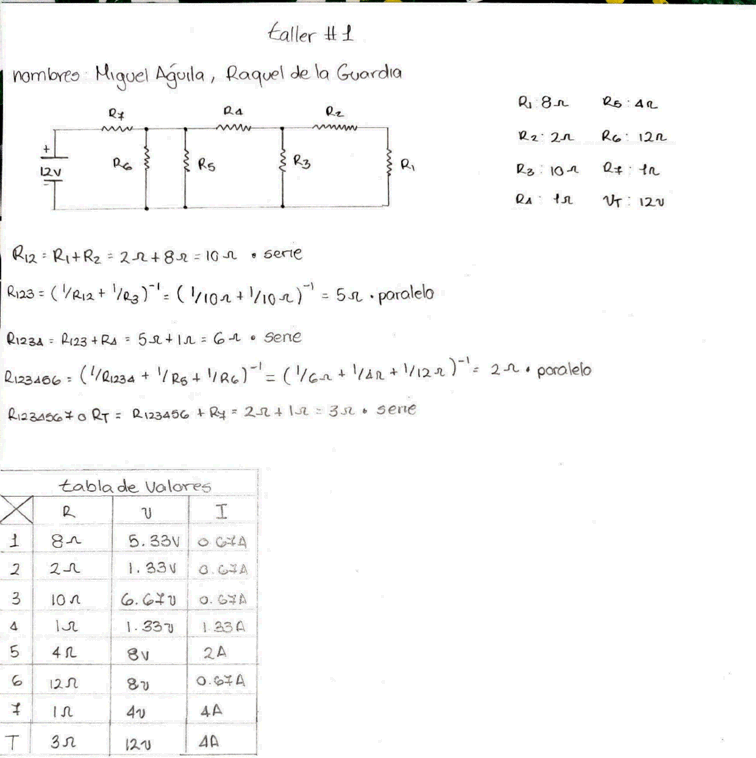 taller #1
nombres: Miguel Águila, Raquel de la Guardia
R7 R4 R2
+ 12V - R6 R5 R3 R1
R1: 8Ω R5: 4Ω
R2: 2Ω R6: 12Ω
R3: 10Ω R7: 1Ω
R4: 1Ω VT: 12V
R12 = R1 + R2 = 2Ω + 8Ω = 10Ω • serie
R123 = (1/R12 + 1/R3)⁻¹ = (1/10Ω + 1/10Ω)⁻¹ = 5Ω • paralelo
R1234 = R123 + R4 = 5Ω + 1Ω = 6Ω • serie
R123456 = (1/R1234 + 1/R5 + 1/R6)⁻¹ = (1/6Ω + 1/4Ω + 1/12Ω)⁻¹ = 2Ω • paralelo
R1234567 o RT = R123456 + R7 = 2Ω + 1Ω = 3Ω • serie
tabla de Valores
R V I
1 8Ω 5.33V 0.67A
2 2Ω 1.33V 0.67A
3 10Ω 6.67V 0.67A
4 1Ω 1.33V 1.33A
5 4Ω 8V 2A
6 12Ω 8V 0.67A
7 1Ω 4V 4A
T 3Ω 12V 4A